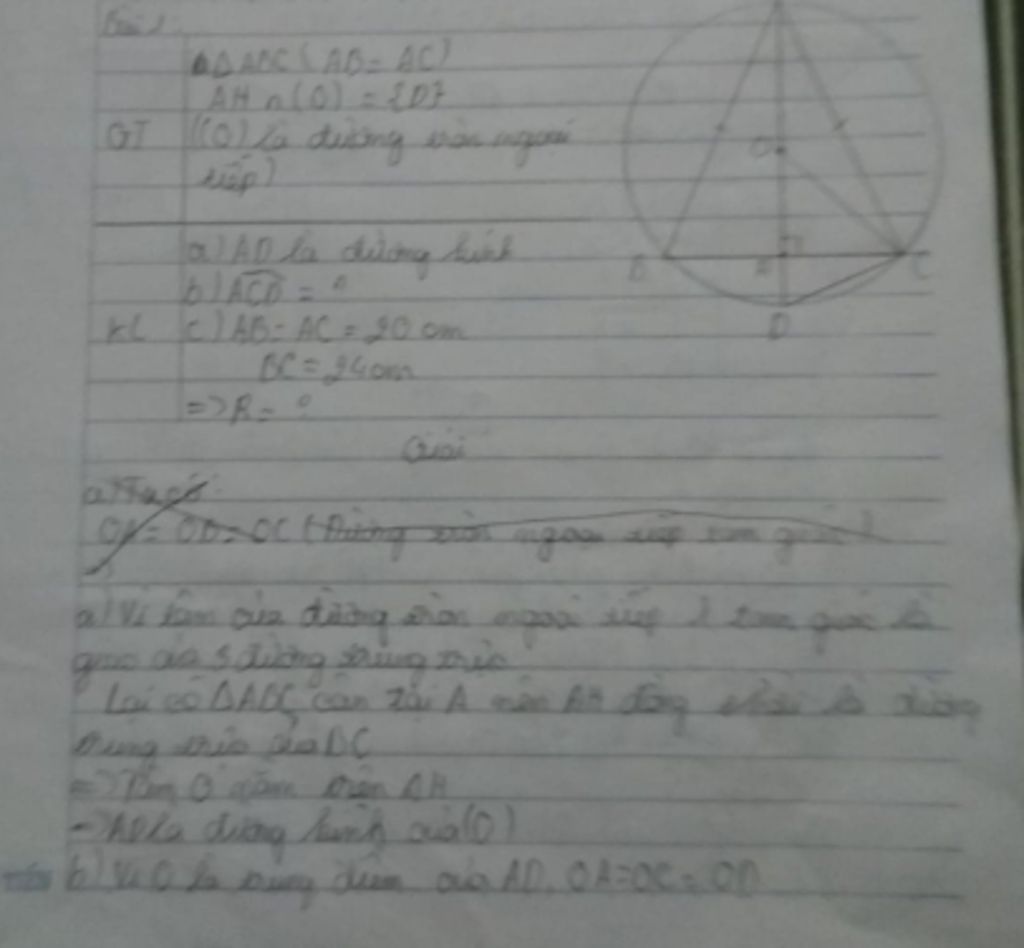 Bài 1
ΔABC (AB = AC)
AH ∩ (O) = {D}
GT ((O) là đường tròn ngoại
tiếp)
a) AD là đường kính
b) ACD = ?
KL c) AB = AC = 20 cm
BC = 24 cm
=> R = ?
O
B H C
D
Giải
a) Ta có:
OA = OB = OC (Đường tròn ngoại tiếp tam giác)
a) Vì tâm của đường tròn ngoại tiếp 1 tam giác là
giao của 3 đường trung trực
Lại có ΔABC cân tại A nên AH đồng thời là đường
trung trực của BC
=> Tâm O nằm trên AH
=> AD là đường kính của (O)
b) Vì O là trung điểm của AD, OA = OC = OD